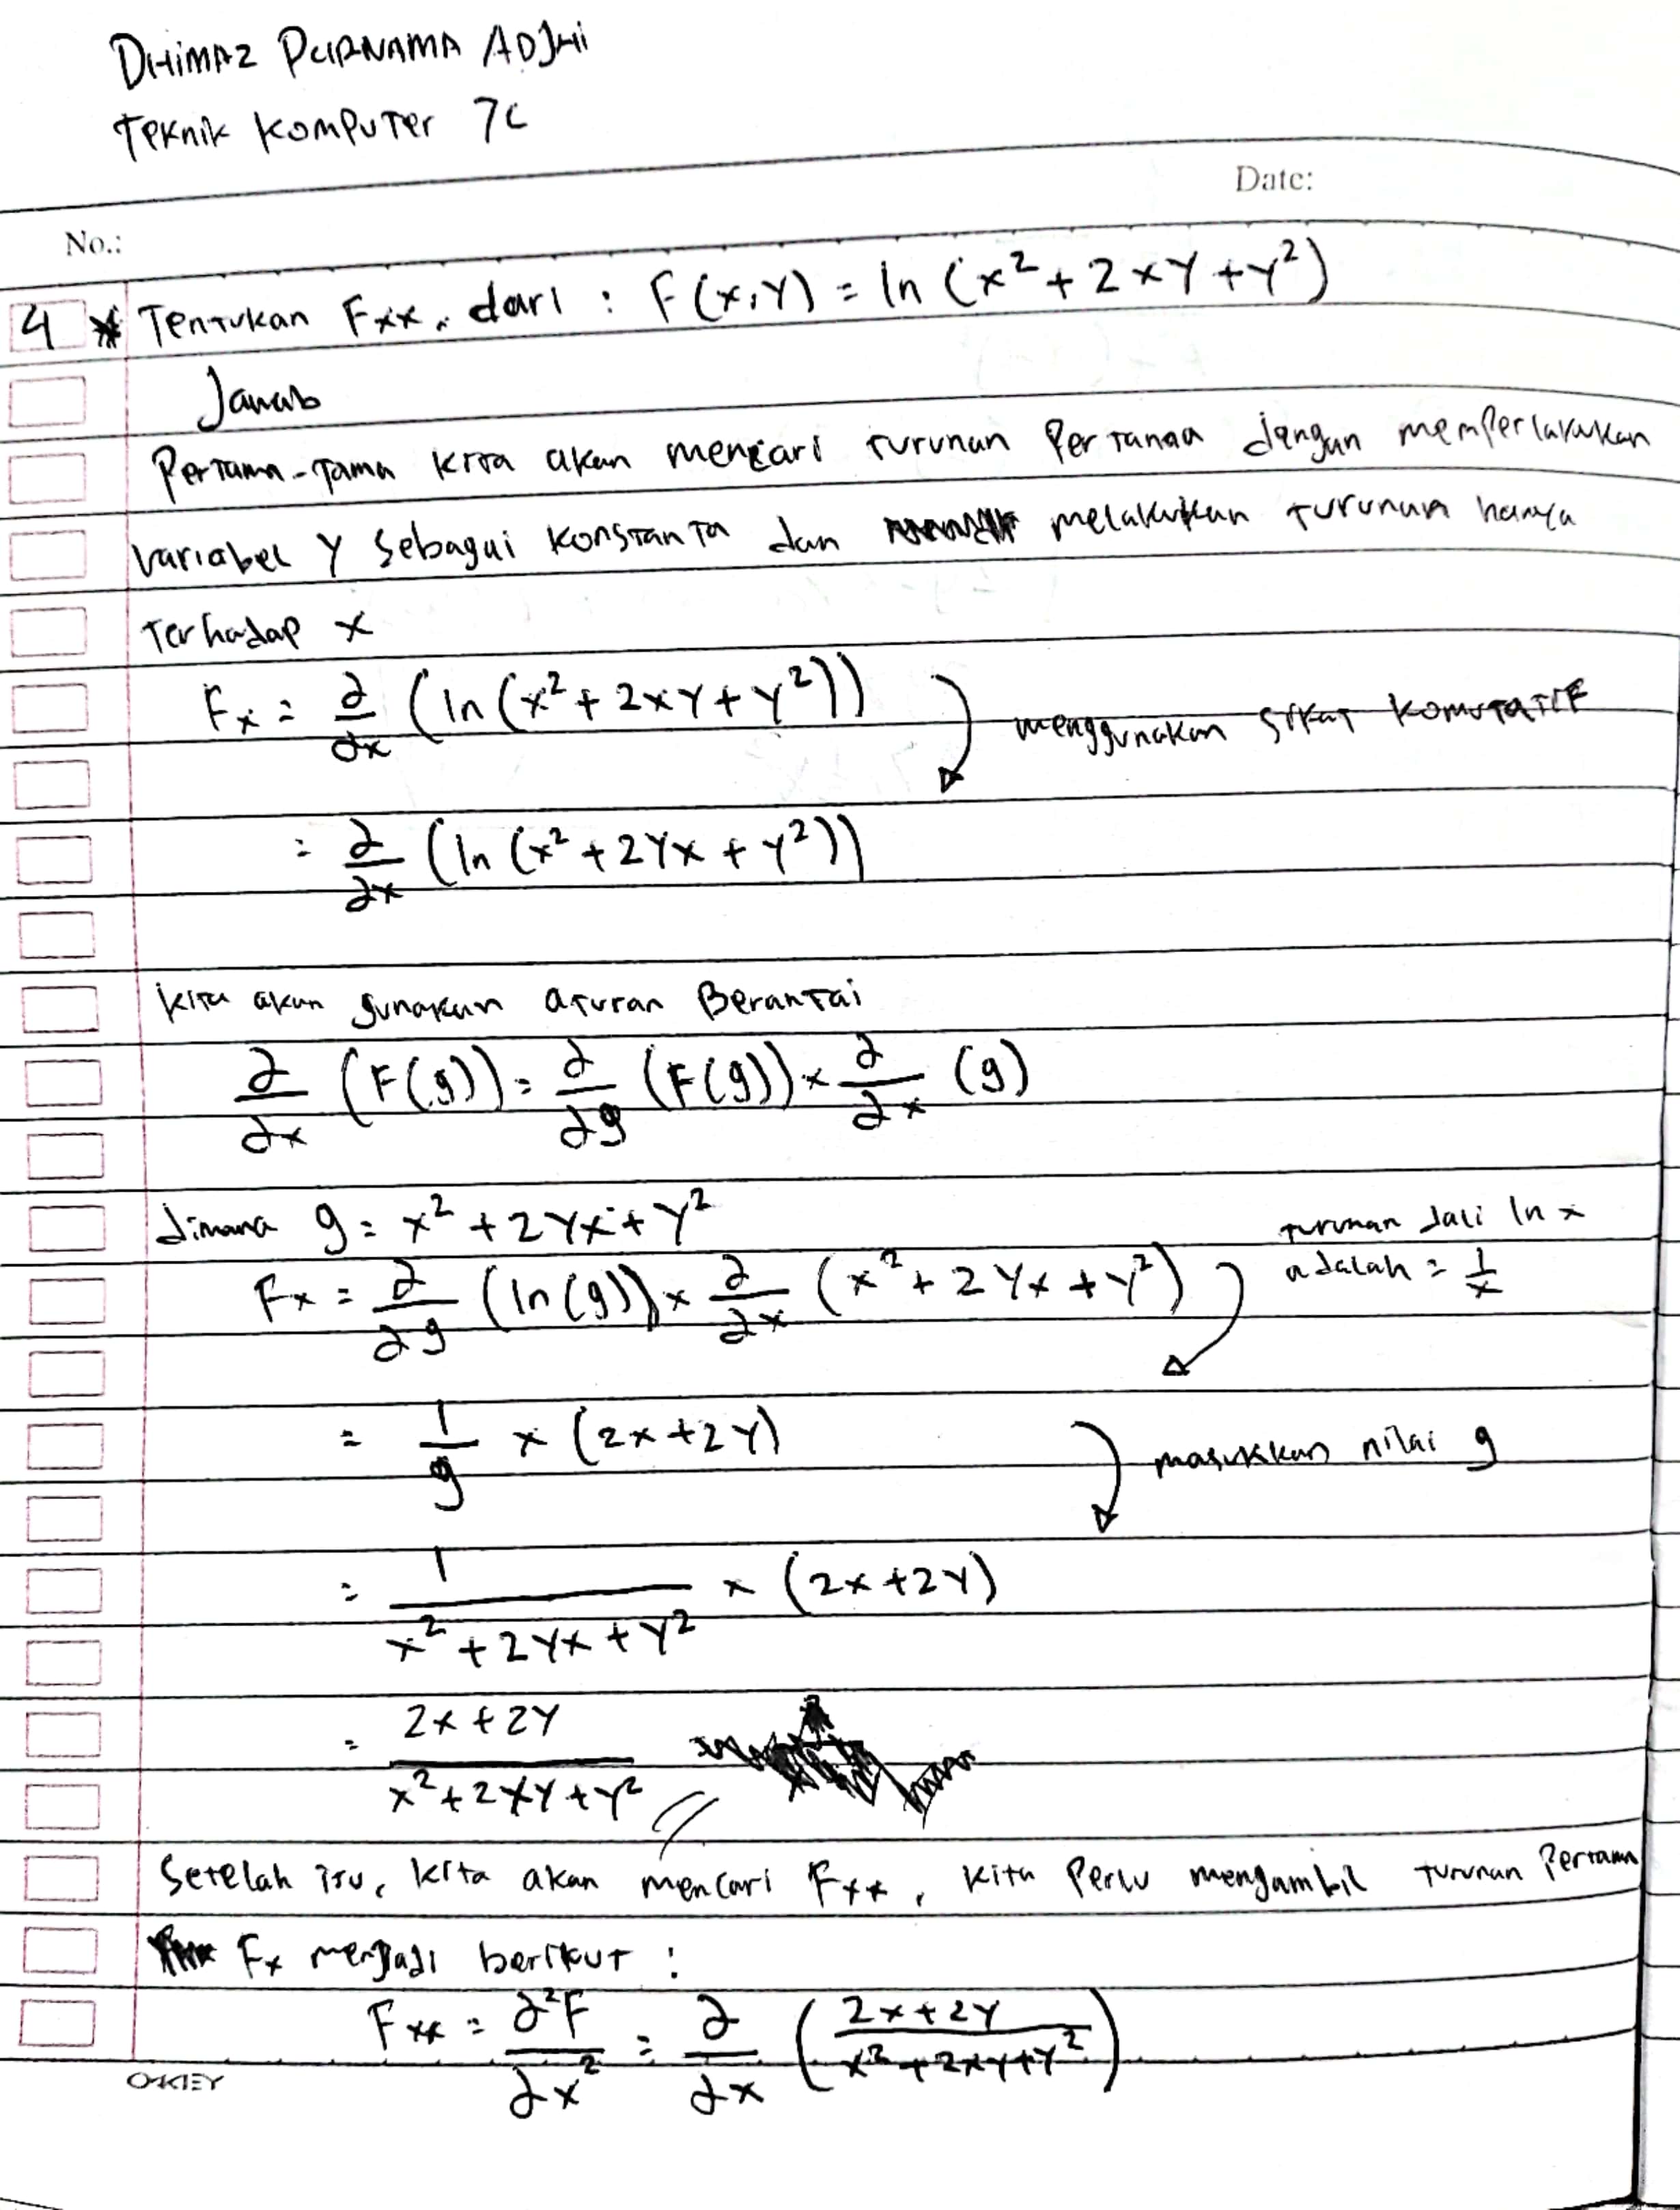 DHIMAZ PURNAMA ADJHI
Teknik Komputer 7C
Date:
No.:
4 * Tentukan Fxx. dari : F(x,y) = ln (x² + 2xy + y²)
Jawab
Pertama-tama kita akan mencari turunan pertama dengan memperlakukan
variabel y sebagai konstanta dan melakukan turunan hanya
terhadap x
Fx = ∂/∂x (ln (x² + 2xy + y²)) menggunakan sifat komutatif
= ∂/∂x (ln (x² + 2yx + y²))
kita akan gunakan aturan Berantai
∂/∂x (F(g)) = ∂/∂g (F(g)) × ∂/∂x (g)
dimana g = x² + 2yx + y²
turunan dari ln x
adalah = 1/x
Fx = ∂/∂g (ln(g)) × ∂/∂x (x² + 2yx + y²)
= 1/g × (2x + 2y) masukkan nilai g
= 1/(x² + 2yx + y²) × (2x + 2y)
= (2x + 2y)/(x² + 2xy + y²) //
Setelah itu, kita akan mencari Fxx, kita perlu mengambil turunan pertama
Fx menjadi berikut :
Fxx = ∂²F/∂x² = ∂/∂x ((2x + 2y)/(x² + 2xy + y²))
O-KEY